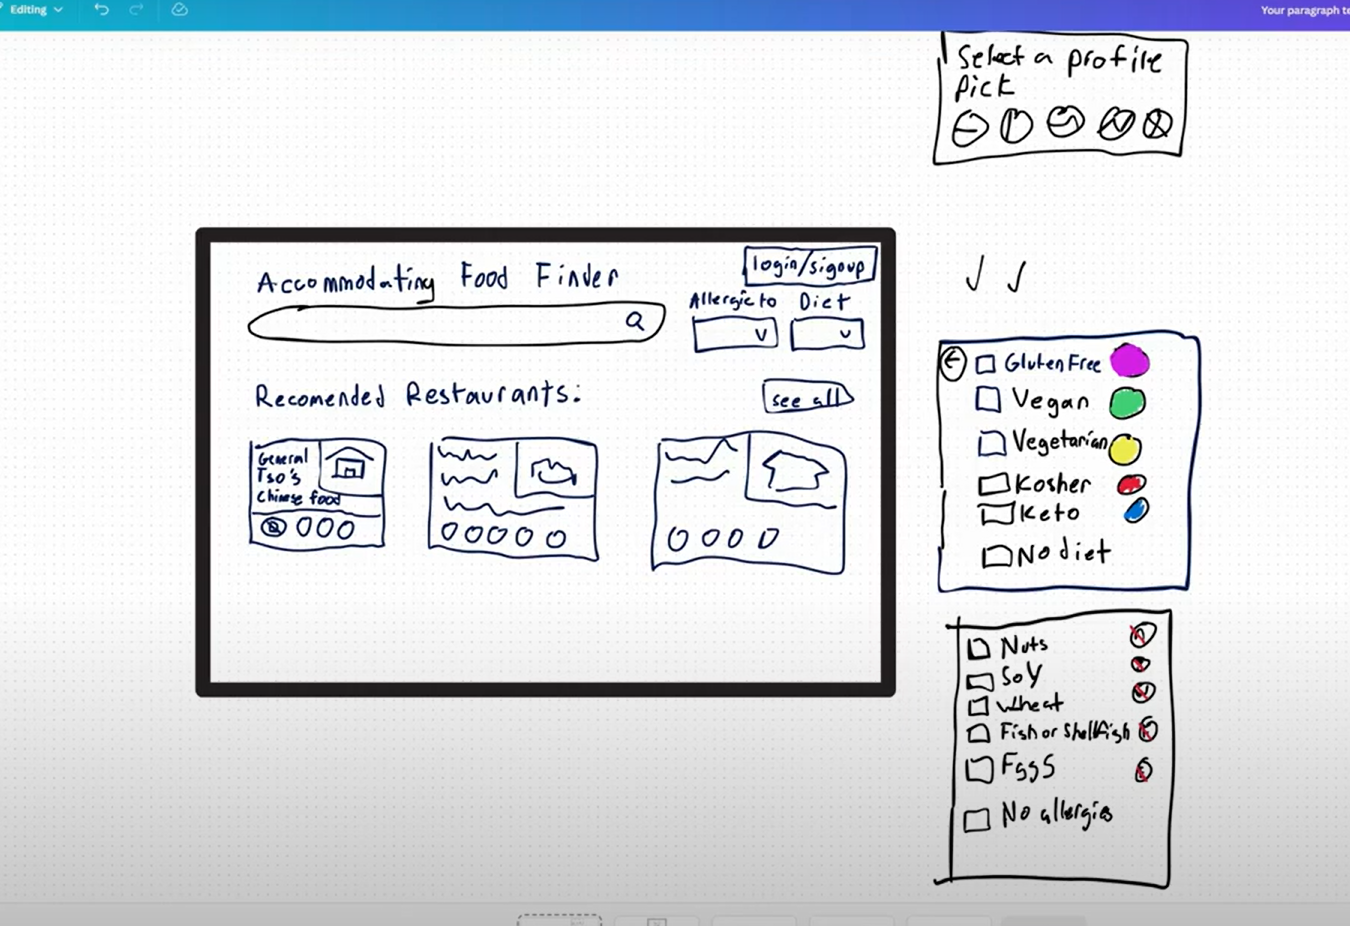 Editing
Your paragraph te
Select a profile
pick
Accommodating Food Finder
login/sigoup
Allergic to Diet
Recomended Restaurants:
see all
General
Tso's
Chinese food
Gluten Free
Vegan
Vegetarian
Kosher
Keto
No diet
Nuts
Soy
Wheat
Fish or Shellfish
Eggs
No allergies